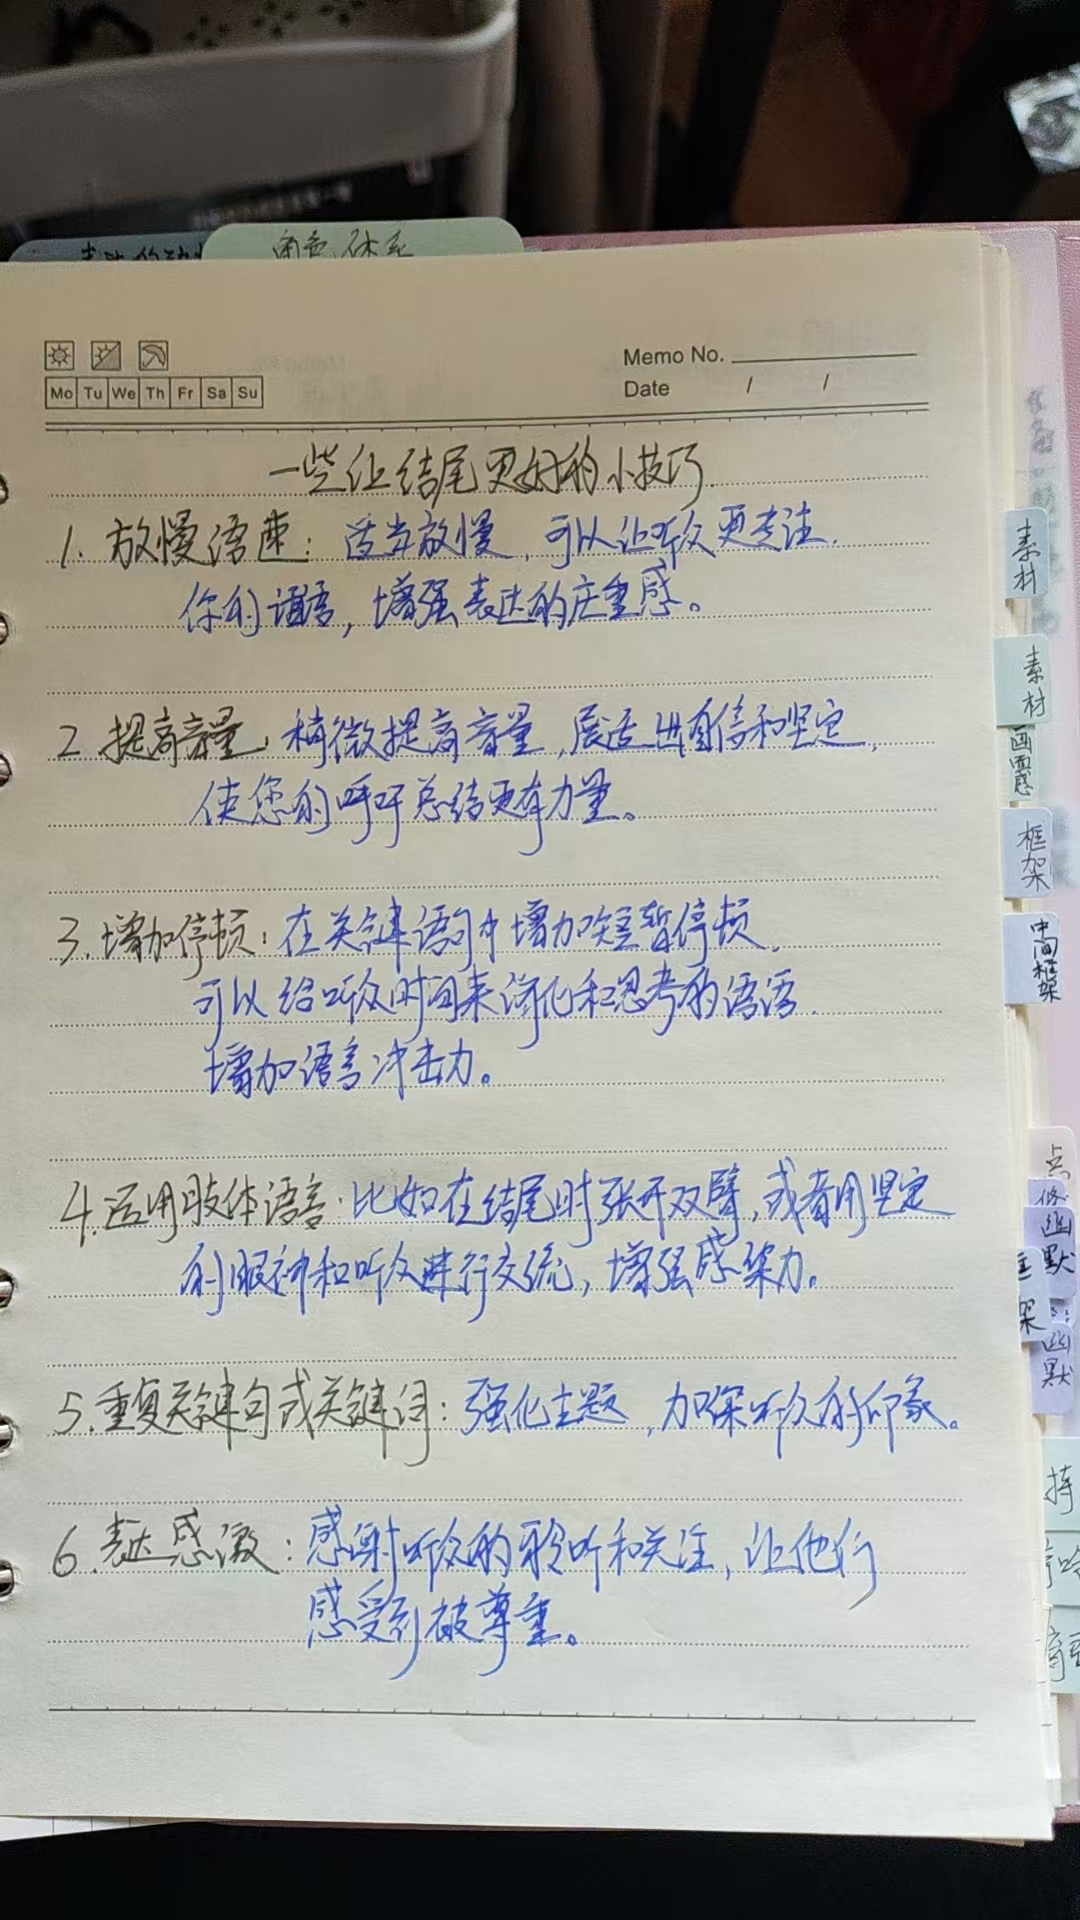 Memo No.
Date / /
Mo Tu We Th Fr Sa Su
一些让结尾更好的小技巧
1. 放慢语速：适当放慢，可以让听众更专注
你的语言，增强表达的庄重感。
2. 提高音量：稍微提高音量，展适出自信和坚定，
使您的呼吁总结更有力量。
3. 增加停顿：在关键语句中增加短暂停顿，
可以给听众时间来消化和思考的语话，
增加语言冲击力。
4. 运用肢体语言：比如在结尾时张开双臂，或者用坚定
的眼神和听众进行交流，增强感染力。
5. 重复关键句或关键词：强化主题，加深听众的印象。
6. 表达感激：感谢听众的聆听和关注，让他们
感受到被尊重。
素材
素材
画面感
框架
中间框架
点
幽默
框架
幽默
持